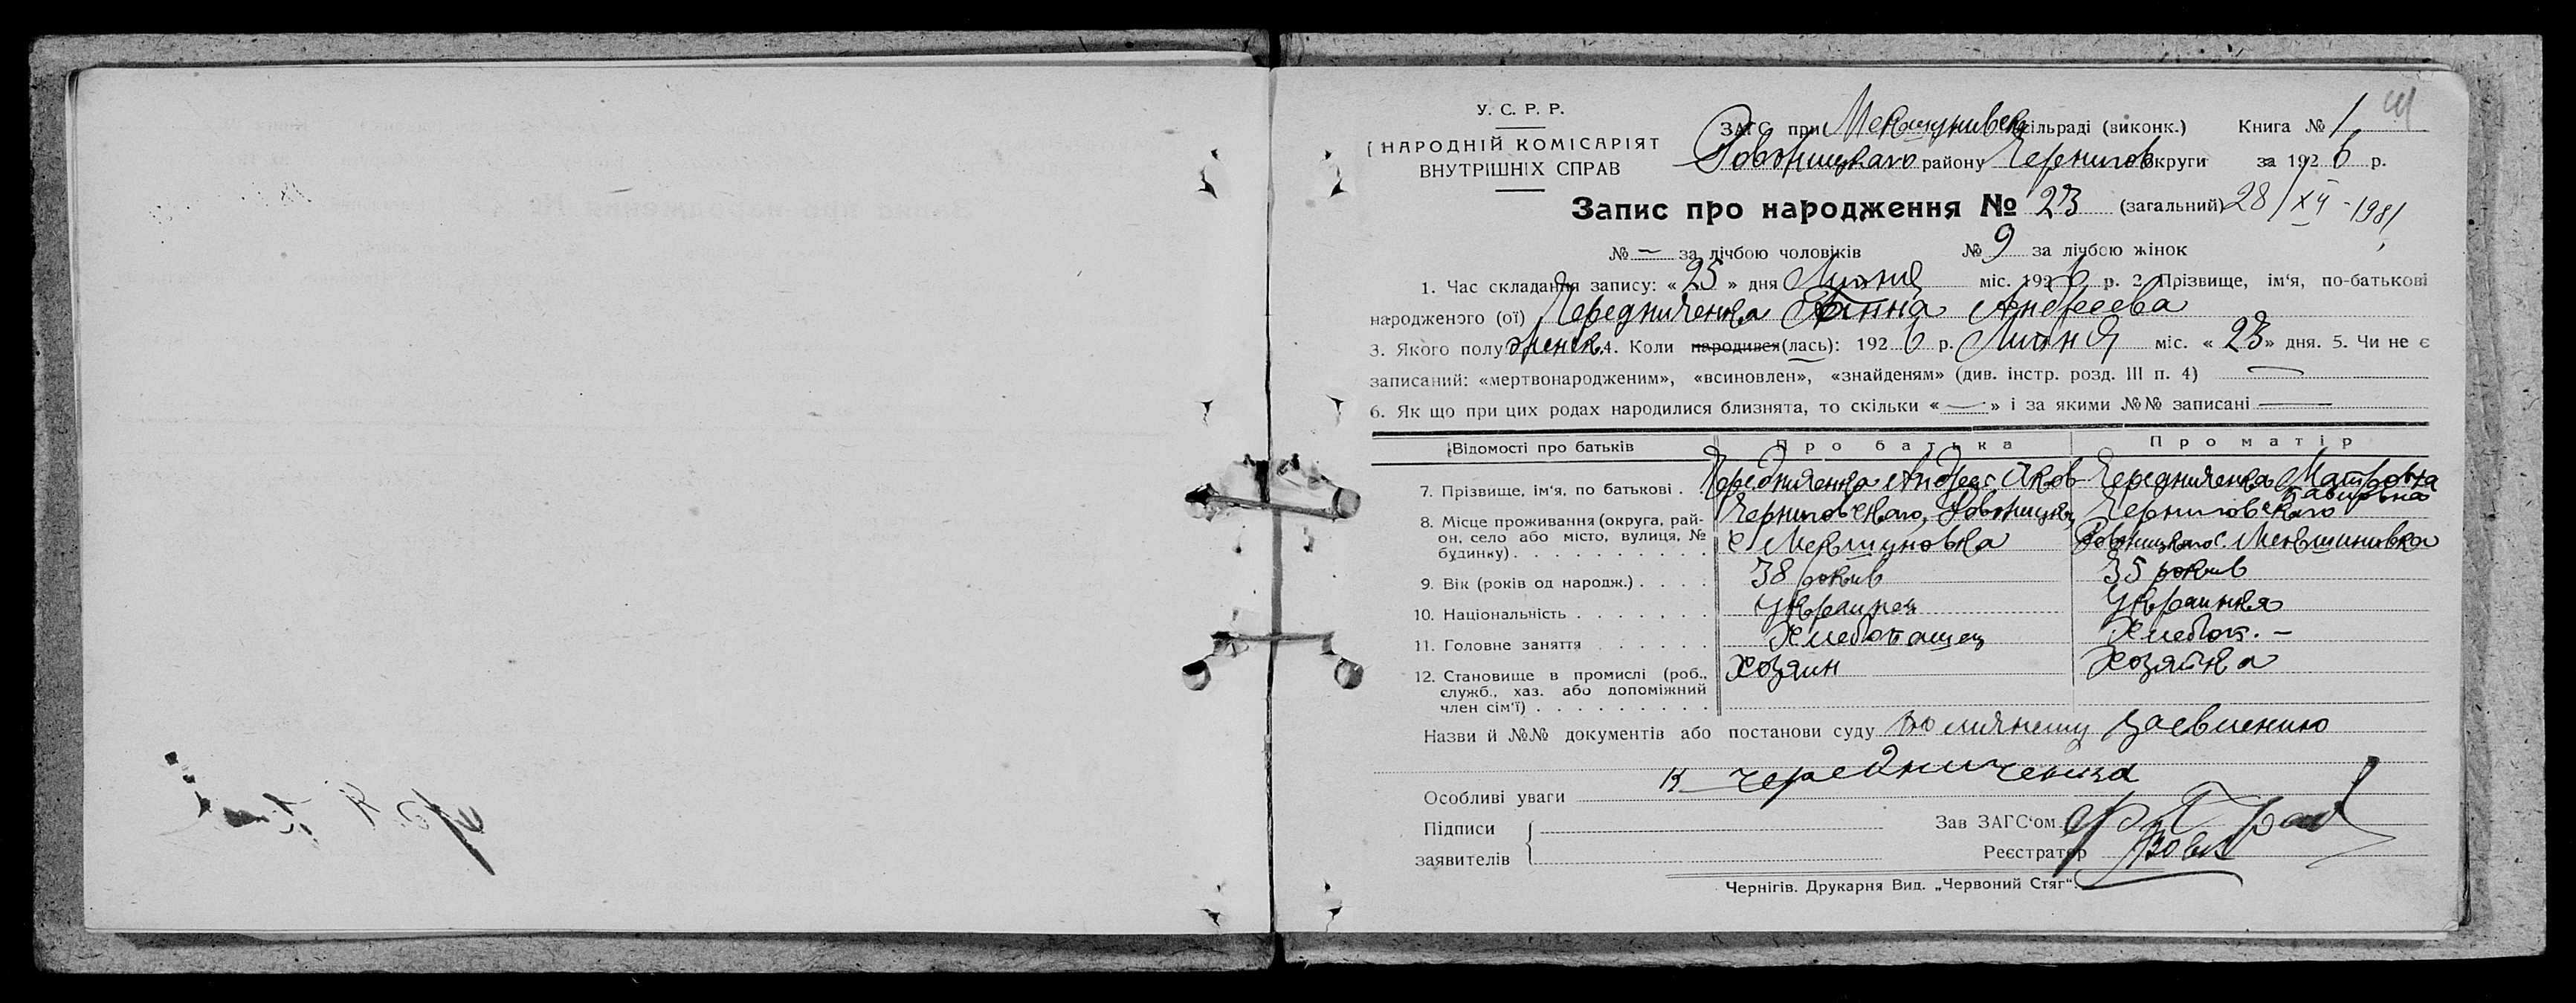 У. С. Р. Р.
НАРОДНІЙ КОМІСАРІЯТ
ВНУТРІШНІХ СПРАВ
ЗАГС при сільраді (виконк.) Книга № 1
району Чернигов округи за 1926 р.
Запис про народження № 23 (загальний) 28/XII-1981
№ — за лічбою чоловіків № 9 за лічбою жінок
1. Час складання запису: « 25 » дня Липня міс. 1926 р. 2. Прізвище, ім'я, по-батькові
народженого (ої) Чередниченко Ганна Андреева
3. Якого полу женск. 4. Коли народився (лась): 1926 р. Липня міс. « 23 » дня. 5. Чи не є
записаний: «мертвонародженим», «всиновлен», «знайденям» (див. інстр. розд. III п. 4) —
6. Як що при цих родах народилися близнята, то скільки « — » і за якими №№ записані —
Відомості про батьків Про батька Про матір
7. Прізвище, ім'я, по батькові . Чередниченко Андрей Яков Чередниченко Матрона
8. Місце проживання (округа, рай- Черниговского, Черниговского
он, село або місто, вулиця, № с. Мекшуновка Мекшуновка
будинку) . . . . . . . . . .
9. Вік (років од народж.) . . . . 38 рокив 35 рокив
10. Національність . . . . . . . Украинец Украинка
11. Головне заняття . . . . . . Хлебопашец Хлебоп. –
12. Становище в промислі (роб., Хозяин Хозяйка
служб., хаз. або допоміжний
член сім'ї) . . . . . . . . .
Назви й №№ документів або постанови суду по личнему заевлению
Особливі уваги к Чередниченко
Підписи
заявителів
Зав ЗАГС'ом
Реєстратор
Чернігів. Друкарня Вид. „Червоний Стяг".